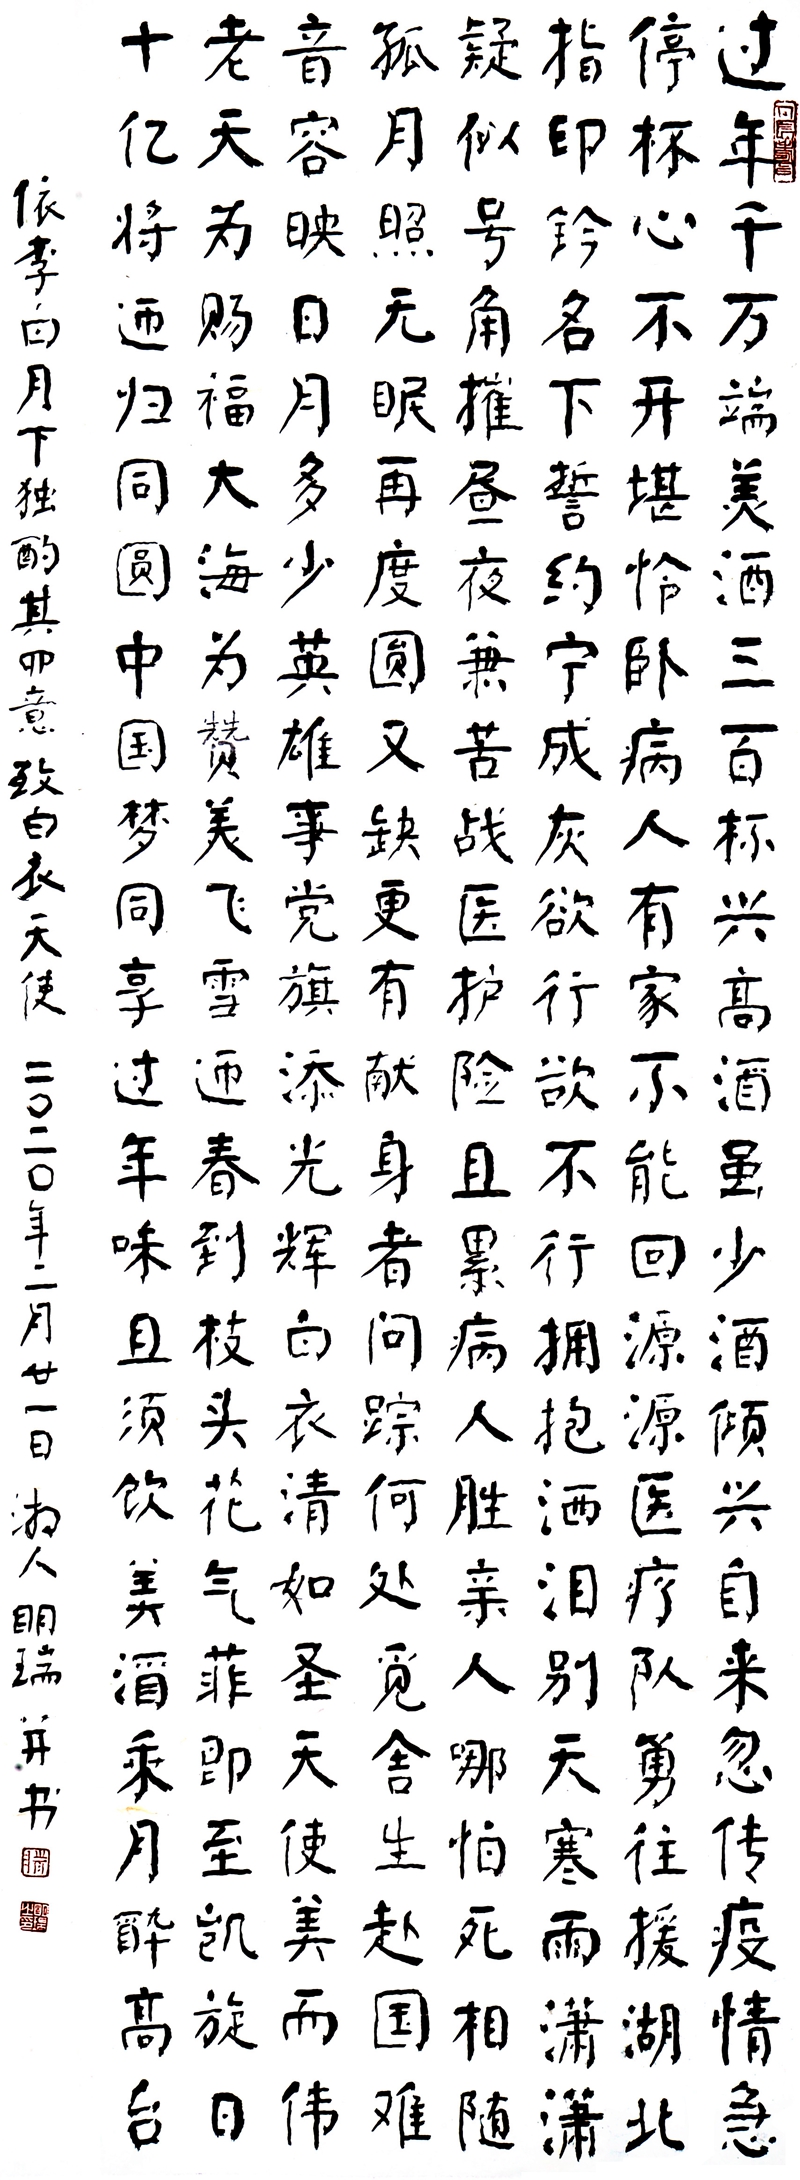 过年千万端美酒三百杯兴高酒虽少酒倾兴自来忽传疫情急
停杯心不开堪怜卧病人有家不能回源源医疗队勇往援湖北
指印钤名下誓约宁成灰欲行欲不行拥抱洒泪别天寒雨潇潇
疑似号角摧昼夜兼苦战医护险且累病人胜亲人哪怕死相随
孤月照无眠再度圆又缺更有献身者问踪何处觅舍生赴国难
音容映日月多少英雄事党旗添光辉白衣清如圣天使美而伟
老天为赐福大海为赞美飞雪迊春到枝头花气菲即至凯旋日
十亿将迊归同圆中国梦同享过年味且须饮美酒乘月醉高台
依李白月下独酌其四意致白衣天使 二〇二〇年二月廿一日 湘人明瑞并书